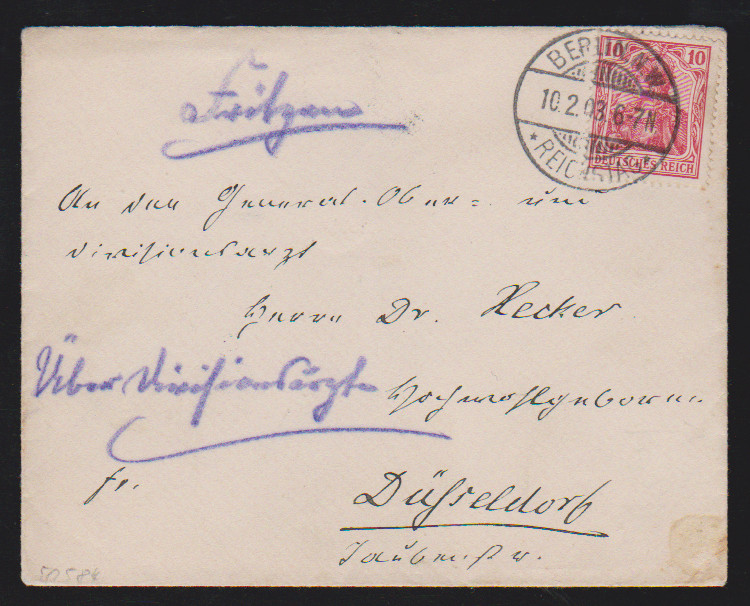 BERLIN N.W.
10.2.03. 6-7N.
* REICHSTAG
10 10
DEUTSCHES REICH
Fritzen
An den General-Ober= und
Divisionsarzt
Herrn Dr. Hecker
Über Divisionsärzte
Hochwohlgeboren
fr.
Düsseldorf
Taubenstr.